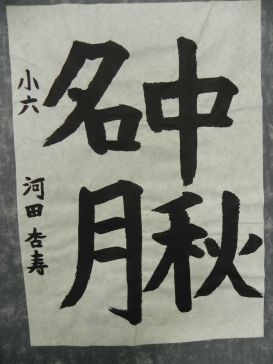 中秋
名月
小六 河田杏寿